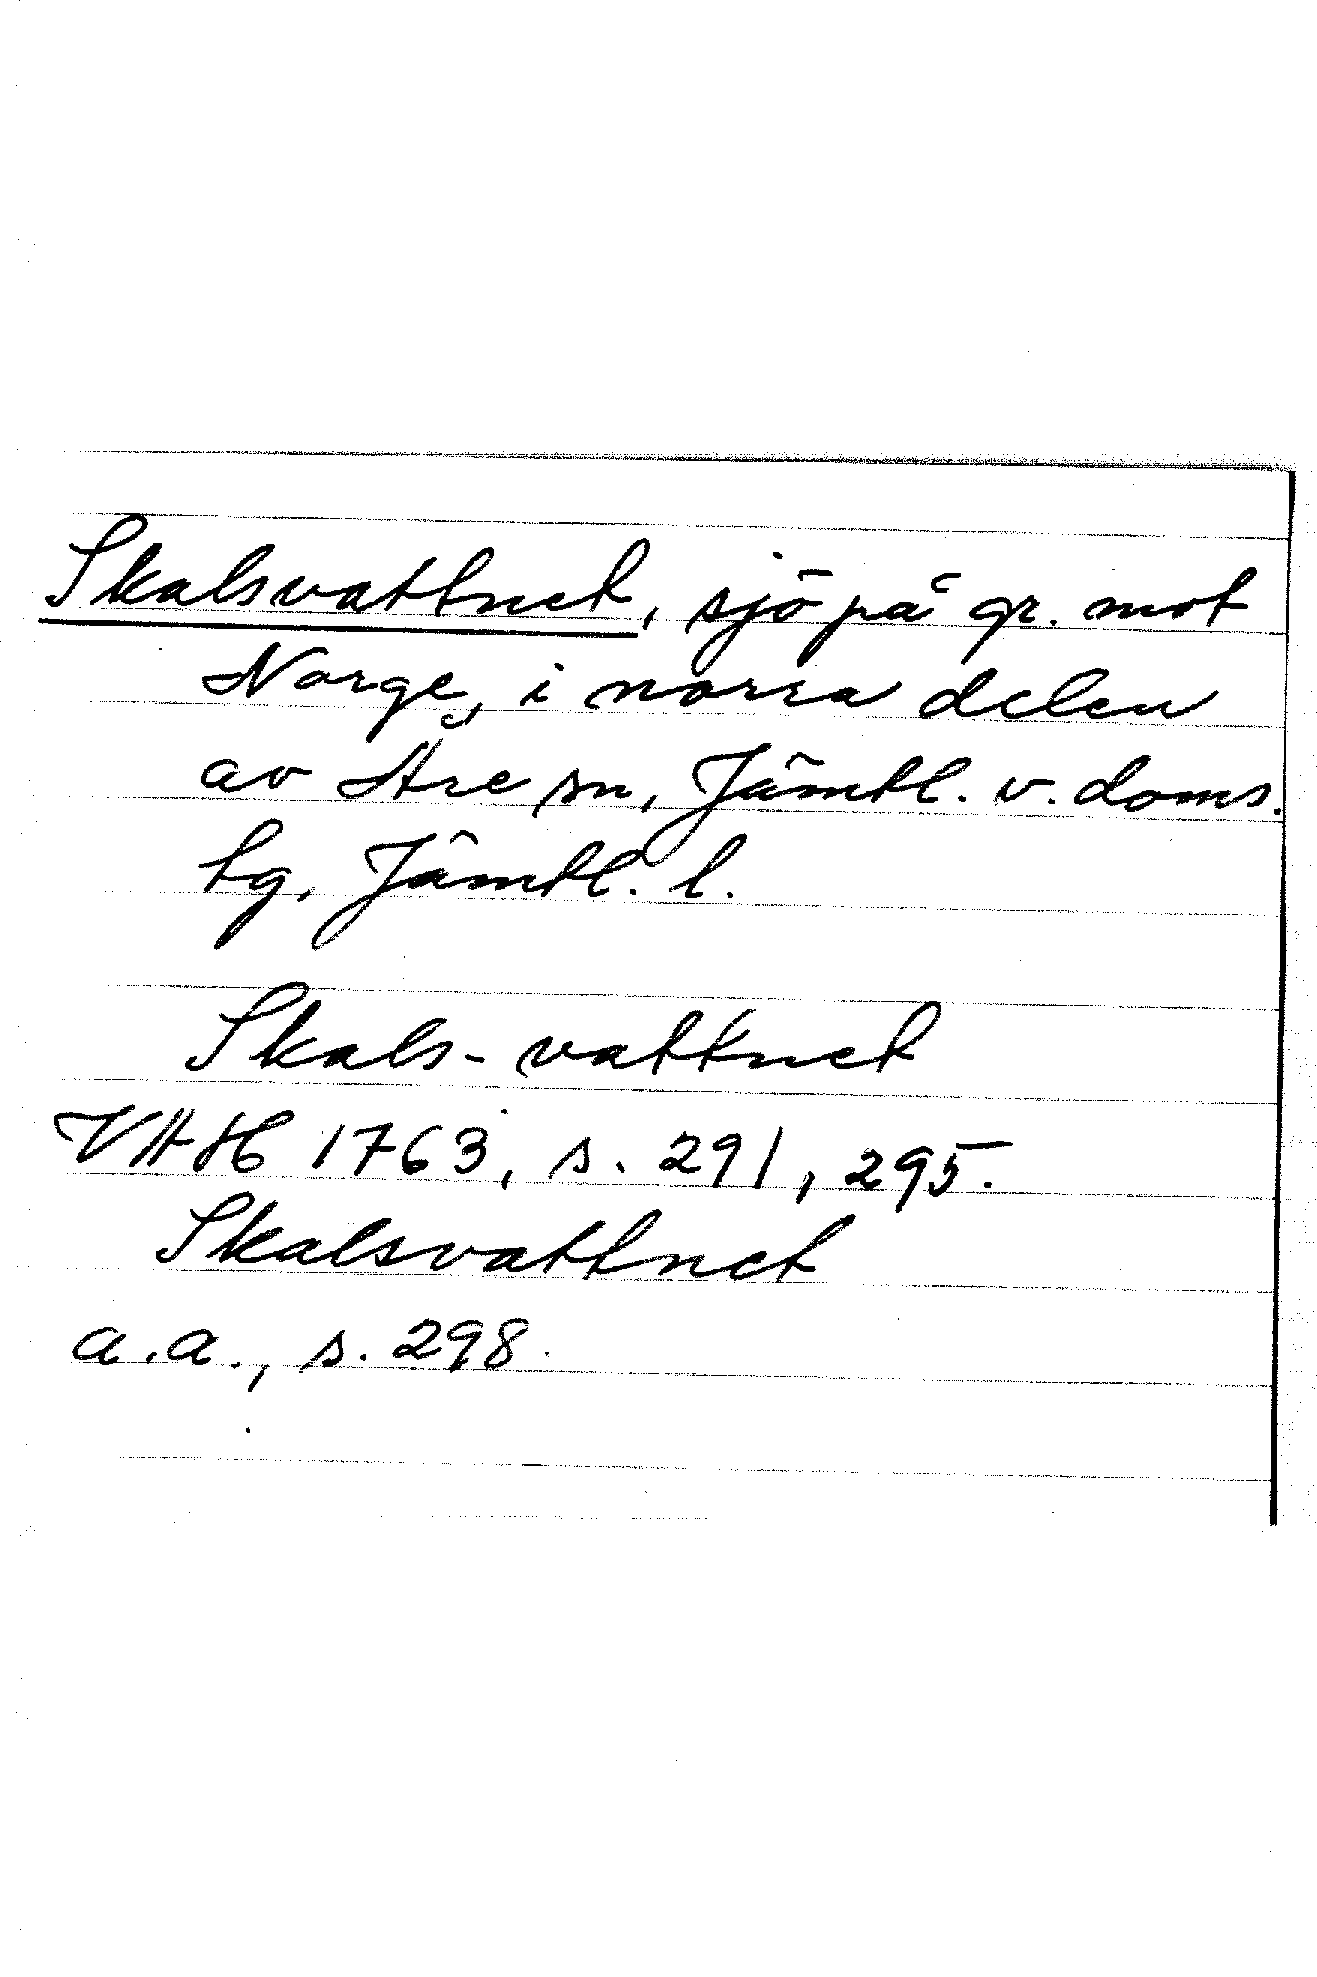 Skalsvattnet, sjö på gr. mot
Norge, i norra delen
av Åre sn, Jämtl. v. doms.
tg, Jämtl. l.
Skals-vattnet
VAH 1763, s. 291, 295.
Skalsvattnet
a.a., s. 298.